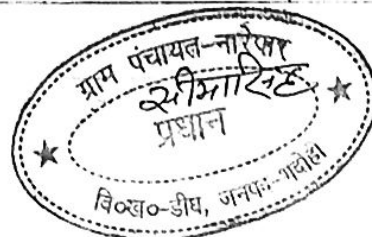 ग्राम पंचायत-नारेपार
सीमा सिंह
प्रधान
वि०ख०-डीघ, जनपद-भदोही